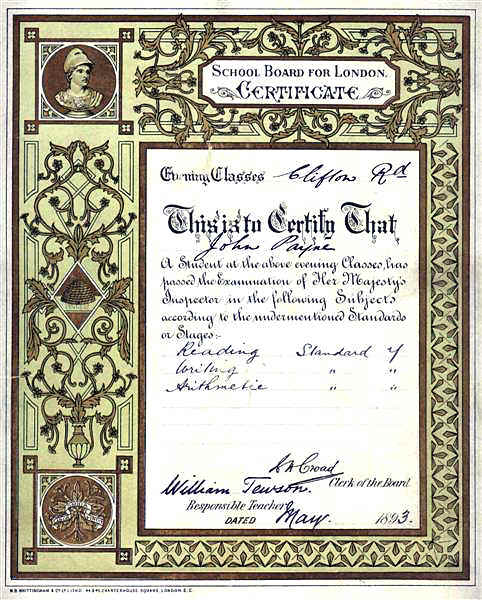 School Board for London.
Certificate
Evening Classes Clifton Rd
This is to Certify That
John Payne
A Student at the above evening Classes, has
passed the Examination of Her Majesty's
Inspector in the following Subjects
according to the undermentioned Standards
or Stages:-
Reading Standard
Writing " "
Arithmetic " "
Croad
Clerk of the Board
William Tewson.
Responsible Teacher
DATED May 1893.
CHARTERHOUSE SQUARE, LONDON E.C.